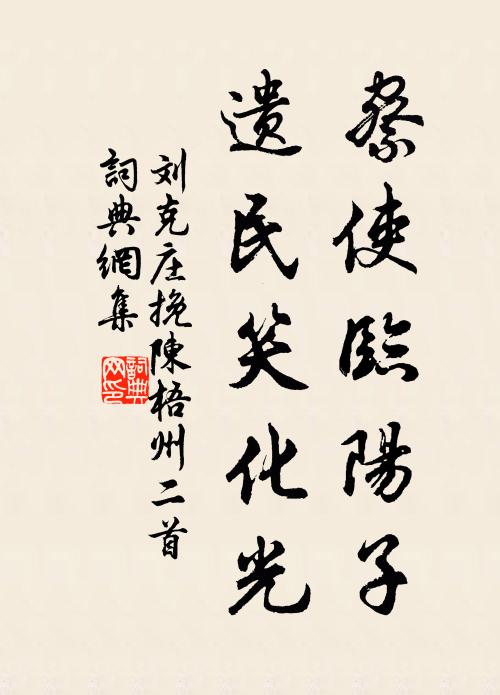 察使臨陽子
遺民笑化光
刘克庄挽陳梧州二首
詞典網集
詞典
网印